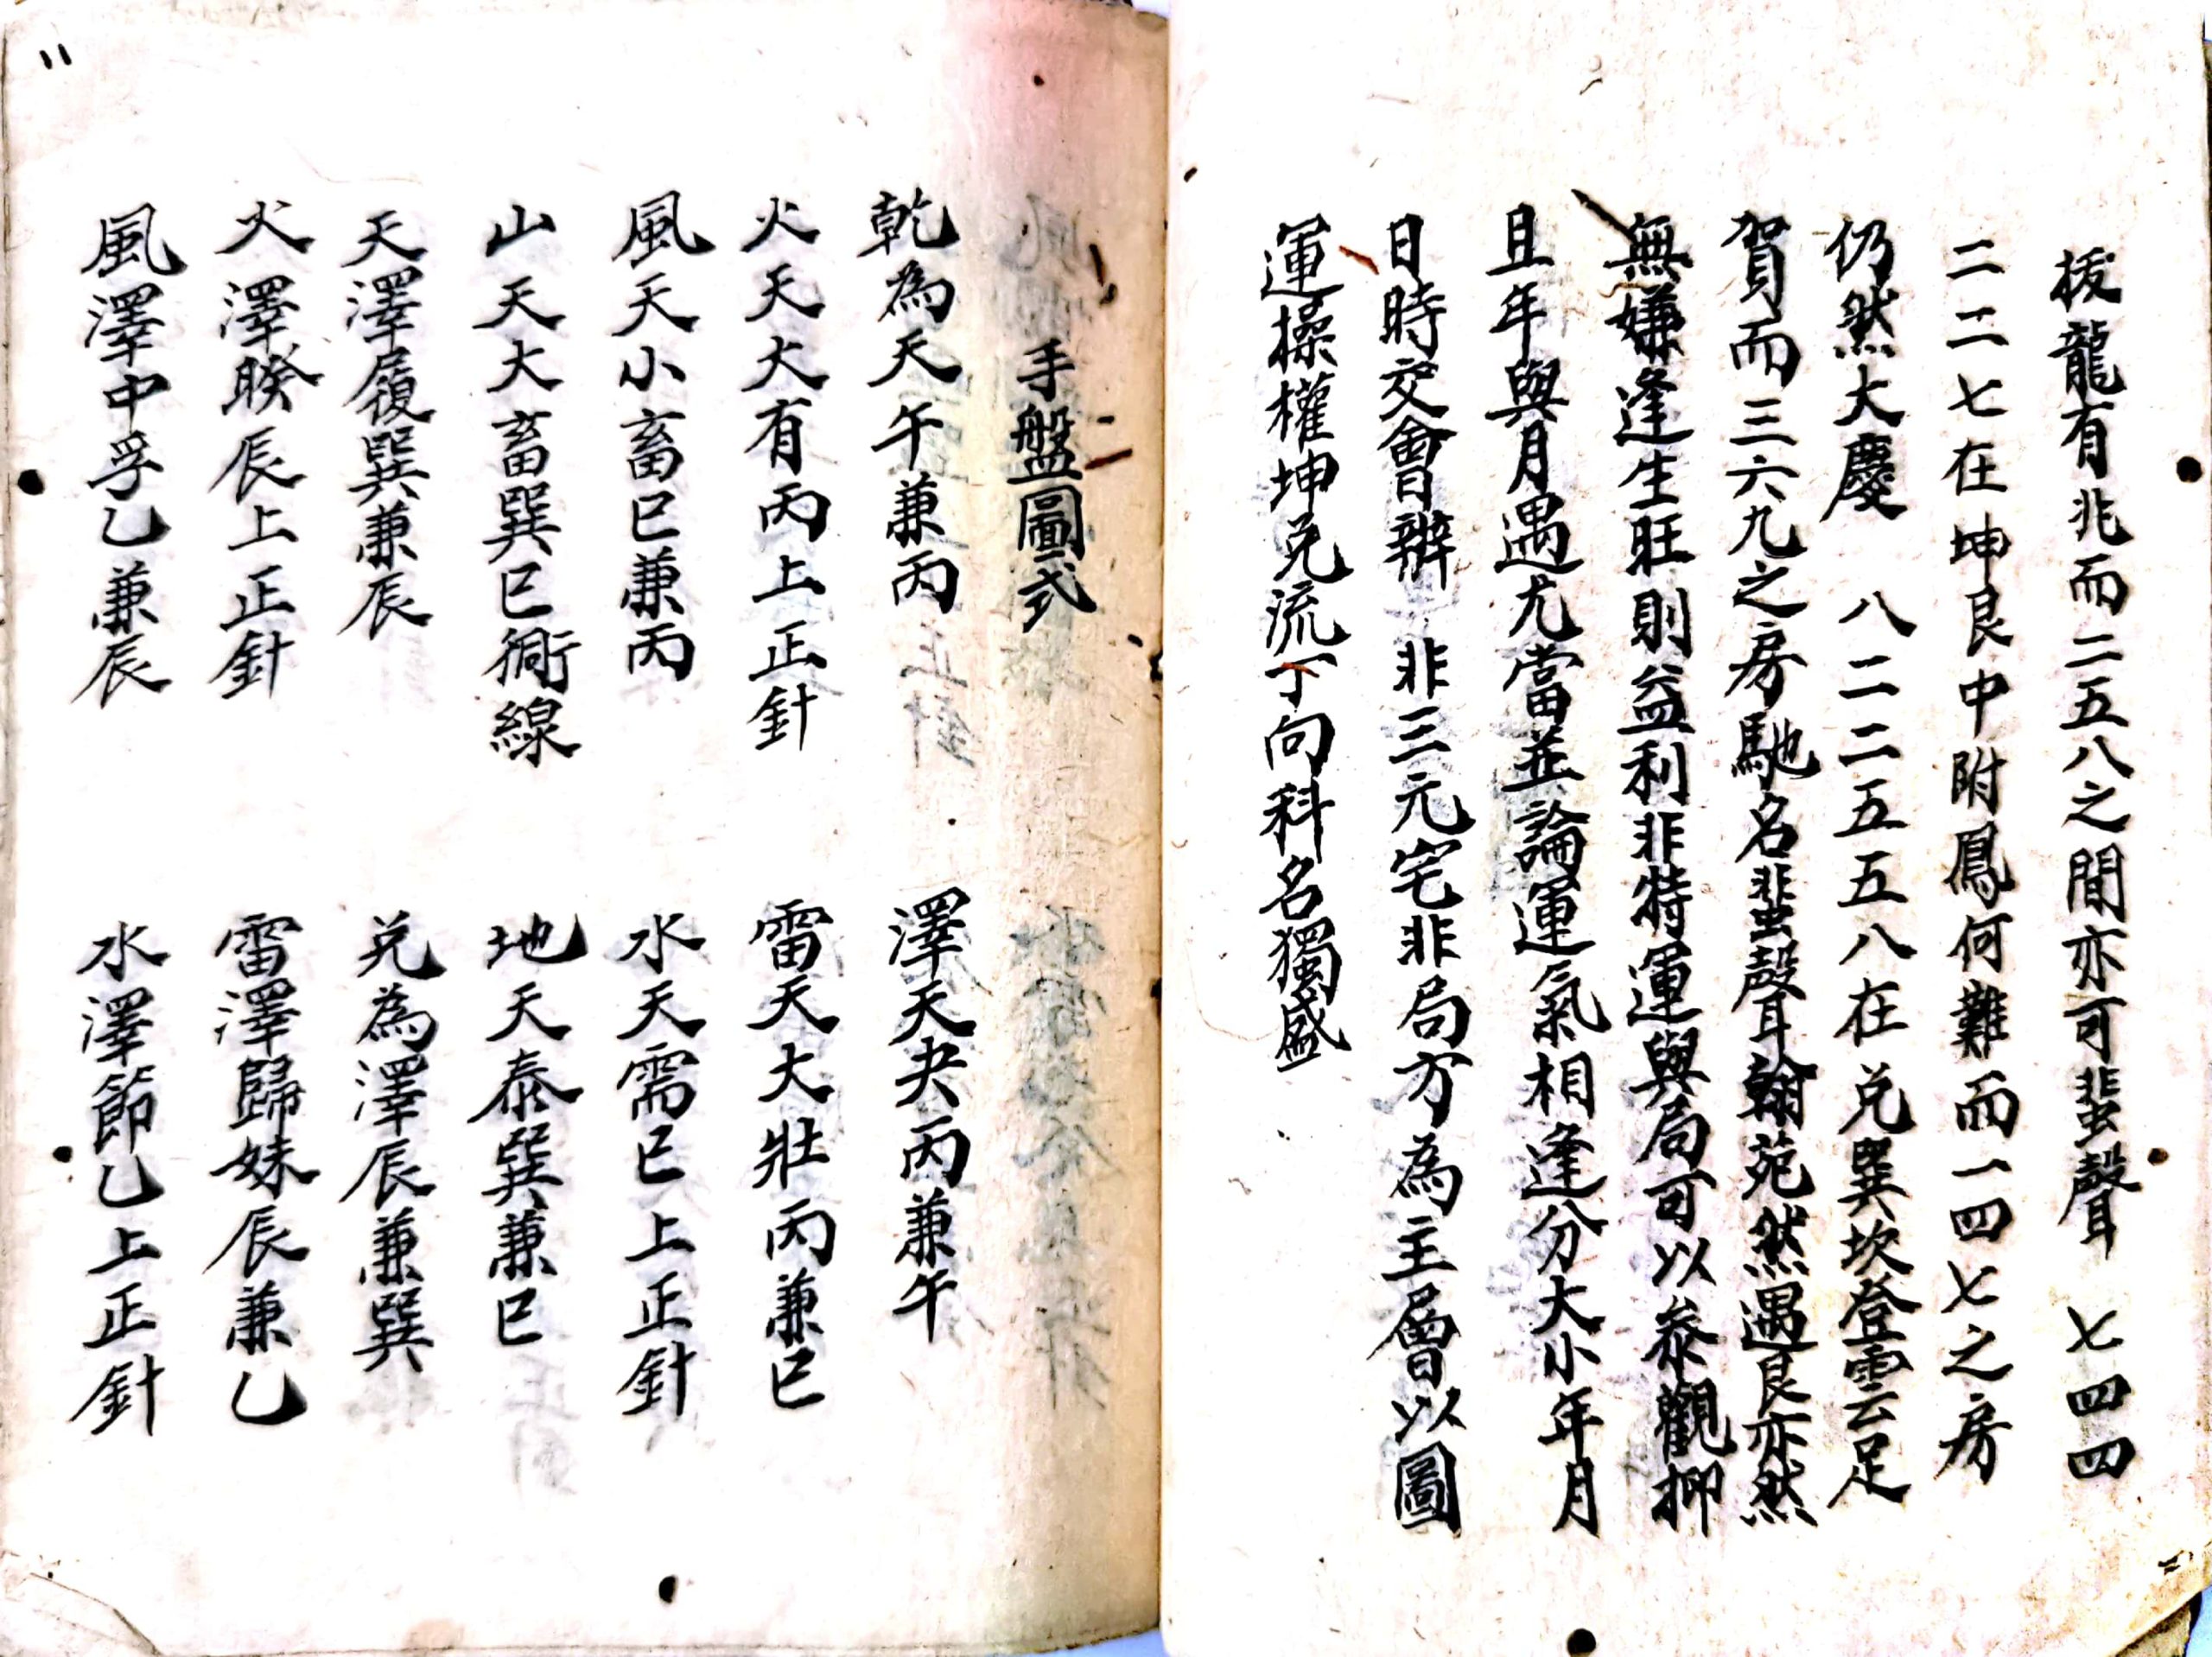 援龍有兆而二五八之間亦可蜚聲 七四四
二二七在坤艮中附鳳何難而一四七之房
仍然大慶 八二二五五八在兌巽坎登雲足
賀而三六九之房馳名蜚聲翰苑然遇艮亦然
無嫌逢生旺則益利非特運與局可以叅觀抑
且年與月遇尤當並論運氣相逢分大小年月
日時交會辨 非三元宅非局方為主層以圖
運操權坤兌流丁向科名獨盛
手盤圖式
乾為天午兼丙 澤天夬丙兼午
火天大有丙上正針 雷天大壯丙兼巳
風天小畜巳兼丙 水天需巳上正針
山天大畜巽巳衕線 地天泰巽兼巳
天澤履巽兼辰 兌為澤辰兼巽
火澤睽辰上正針 雷澤歸妹辰兼乙
風澤中孚乙兼辰 水澤節乙上正針